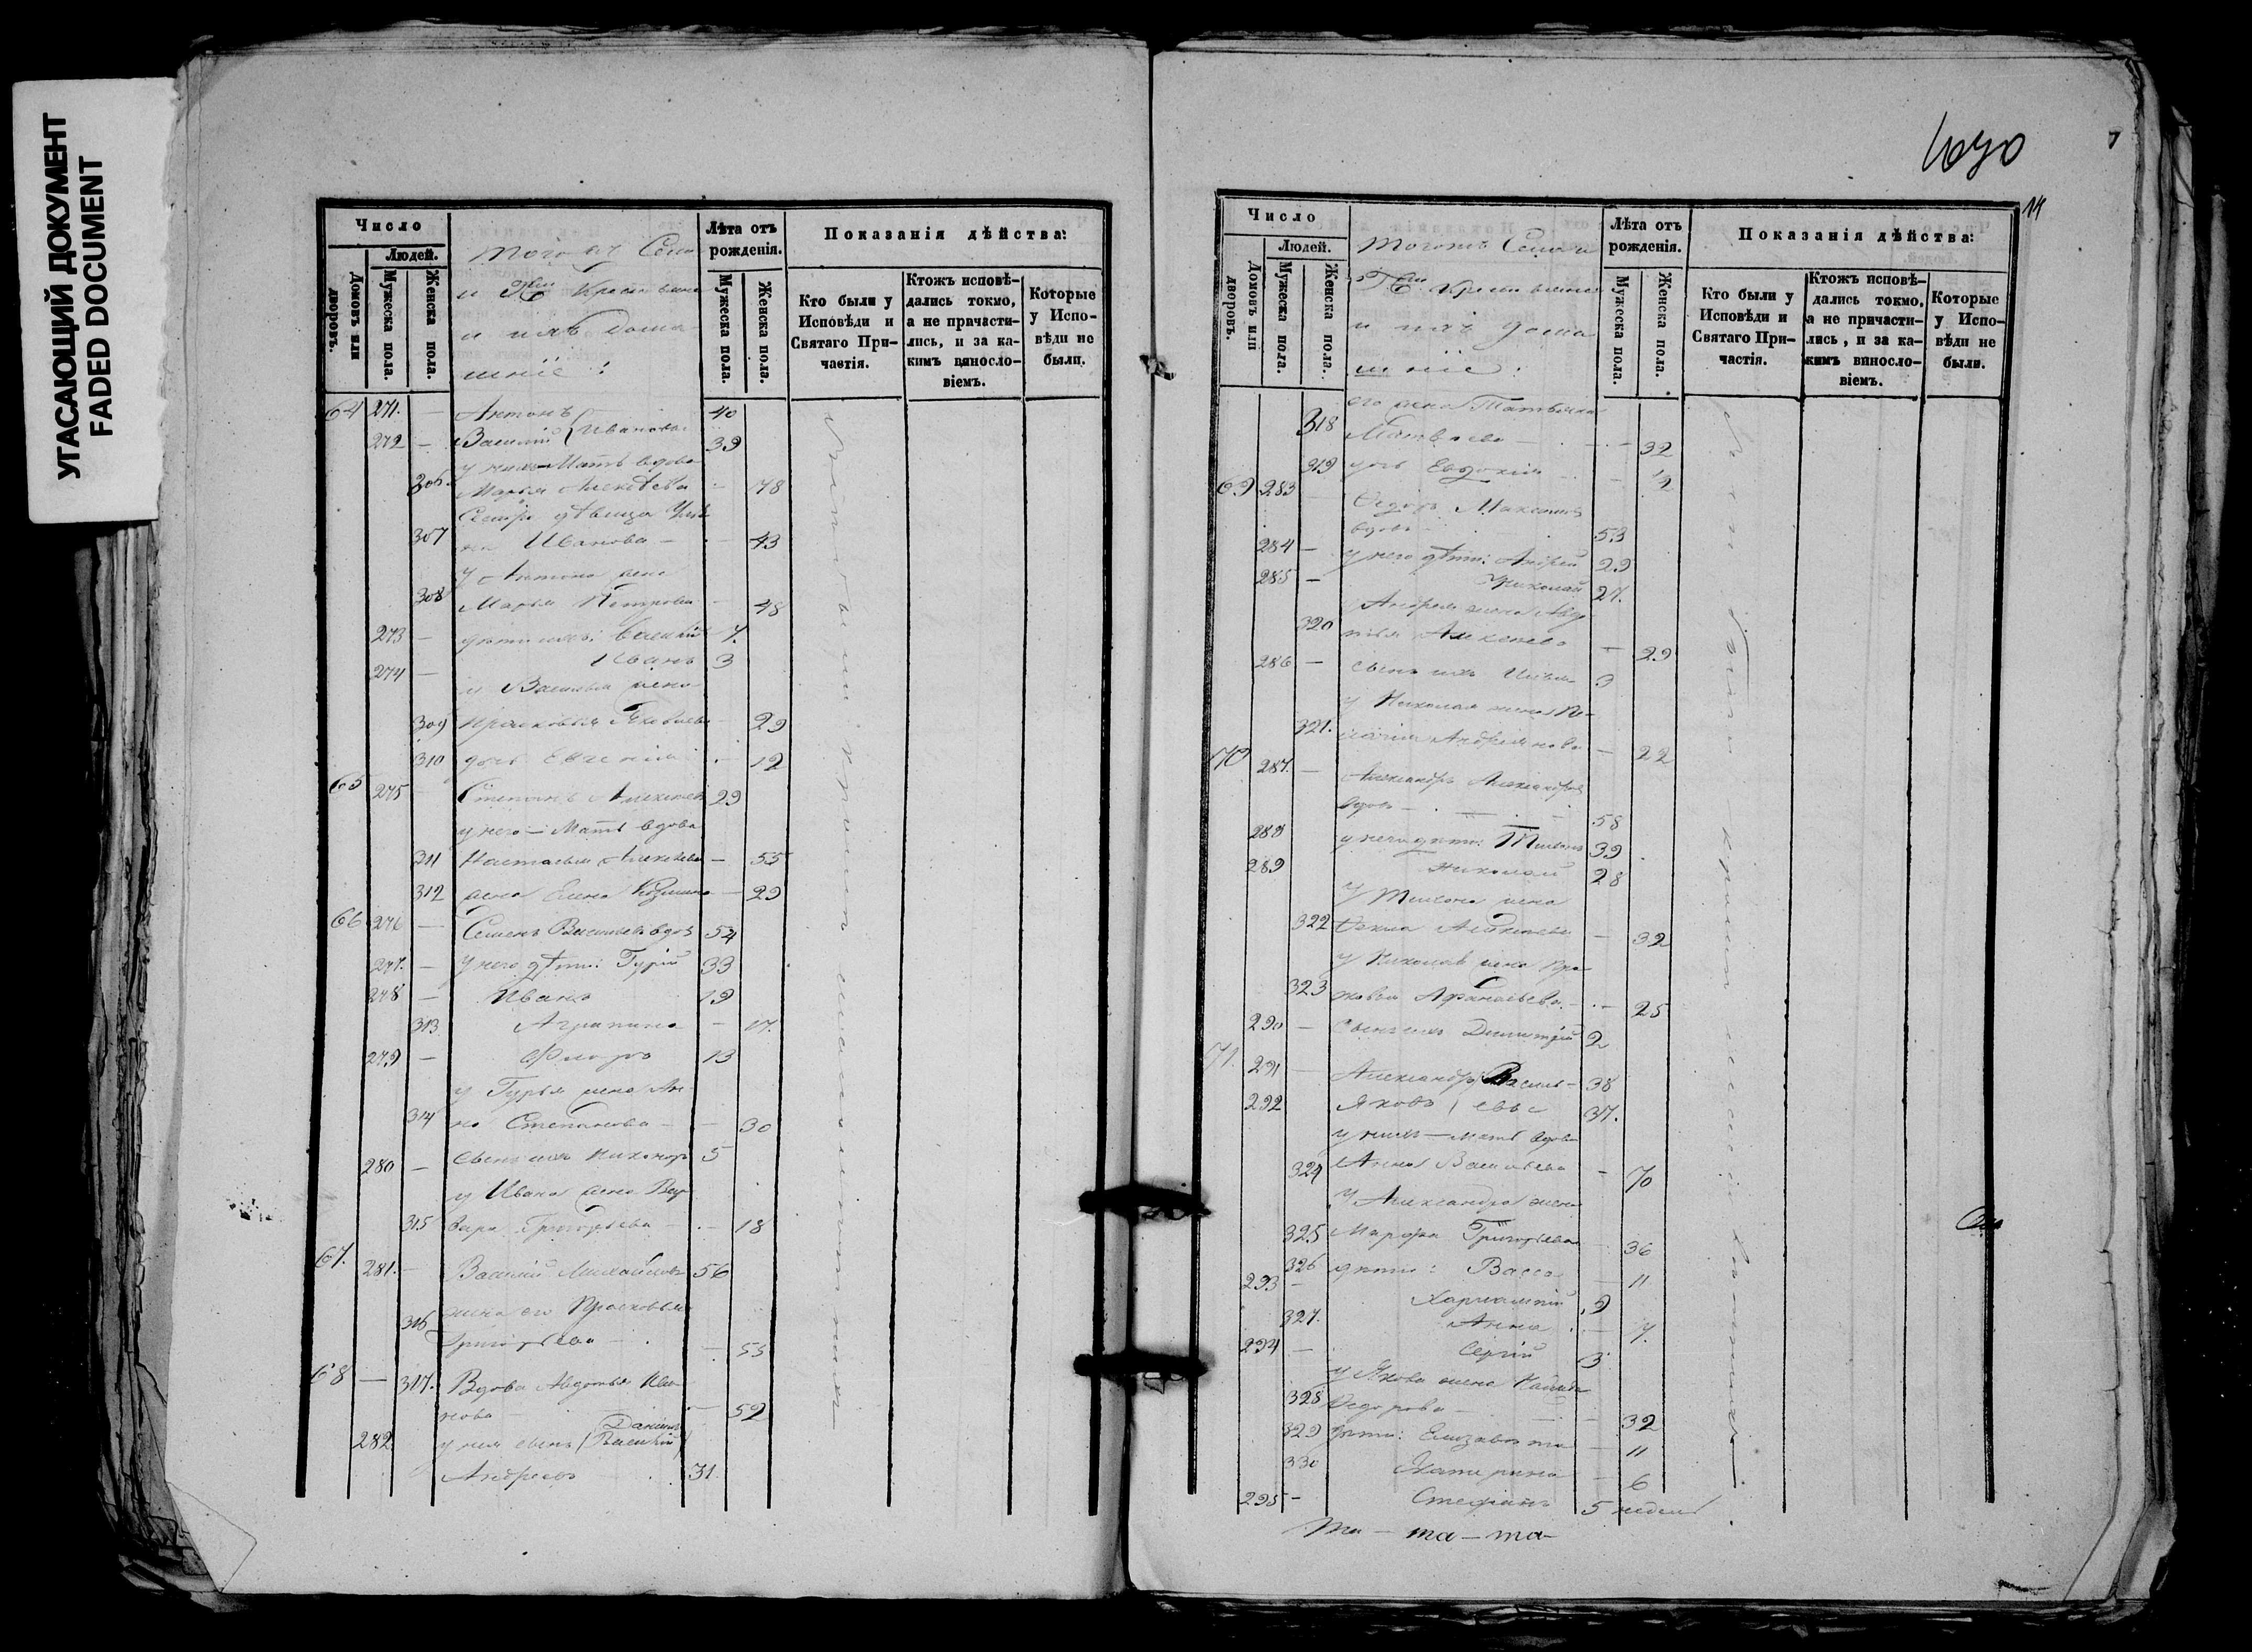 УГАСАЮЩИЙ ДОКУМЕНТ
FADED DOCUMENT
Число
Людей.
Домовъ или дворовъ.
Мужеска пола.
Женска пола.
Тогожъ Села
и Крестьяне
и ихъ домашніе:
Лѣта отъ рожденія.
Мужеска пола.
Женска пола.
Показанія дѣйства:
Кто были у Исповѣди и Святаго Причастія.
Ктожъ исповѣдались токмо, а не причастились, и за какимъ винословіемъ.
Которые у Исповѣди не были.
64 271. — Антонъ 40
272 — Василій } Ивановы 39
у нихъ Мать вдова
306. Марья Алексѣева — 78
Сестра дѣвица
307 Иванова — 43
у Антона жена
308 Марья Петрова — 48
273 — дѣти ихъ: Василій 7.
274 — Иванъ 3
у Василья жена
309 Прасковья Яковлева — 29
310 дочь Евгенія 12
65 275 Степанъ Алексѣевъ 29
у него — Мать вдова
311 Настасья Алексѣева — 55
312 жена Елена Козмина — 29
66 276 — Семенъ Васильевъ вдов 54
277. — у него дѣти: Гурій 33
278 — Иванъ 19
313 Агрипина — 17.
279 — Флоръ 13
у Гурья жена Ан-
314 на Степанова — 30
280 — Сынъ ихъ Никаноръ 5
у Ивана жена Вар-
315 вара Григорьева — 18
67. 281. — Василій Михайловъ 56
жена его Прасковья
316 Григорьева — 53
68 — 317. Вдова Авдотья Ива-
нова — 52
Даниловъ
282. у нея сынъ (Василій)
Андреевъ 31.
были
1670
14
Число
Людей.
Домовъ или дворовъ.
Мужеска пола.
Женска пола.
Тогожъ Села и
Крестьяне
и ихъ домашніе:
Лѣта отъ рожденія.
Мужеска пола.
Женска пола.
Показанія дѣйства:
Кто были у Исповѣди и Святаго Причастія.
Ктожъ исповѣдались токмо, а не причастились, и за какимъ винословіемъ.
Которые у Исповѣди не были.
его жена Татьяна
318 Матвѣева — 32
319 дочь Евдокія — ½
69 283 — Ѳедоръ Максимовъ
вдовъ 53
284 — у него дѣти: Андрей 29
285 — Николай 27.
у Андрея жена Авдо-
320 тья Алексѣева — 29
286 — сынъ ихъ 3
у Николая жена Пе-
321. лагія Андреянова — 22
70 287. — Александръ Александровъ
вдовъ — 58
288 у него дѣти: Тихонъ 39
289 Николай 28
у Тихона жена
322 Ѳекла Алексѣева — 32
у Николая жена Прас-
323 ковья Афанасьева — 25
290 — Сынъ ихъ Димитрій 2
71. 291 — Александръ } Василь- 38
292 Яковъ } евы 37.
у нихъ — мать вдова
324 Анна Васильева — 70
у Александра жена
325 Марфа Григорьева — 36
326 дѣти: Васса — 11
293 — Харлампій 9
327. Анна — 7.
294 — Сергій 3.
у Якова жена
328 Ѳедорова — 32
329 дѣти: Елизавета — 11
330 Катерина — 6
295 — Стефанъ 5 недель
та — та — та —
были